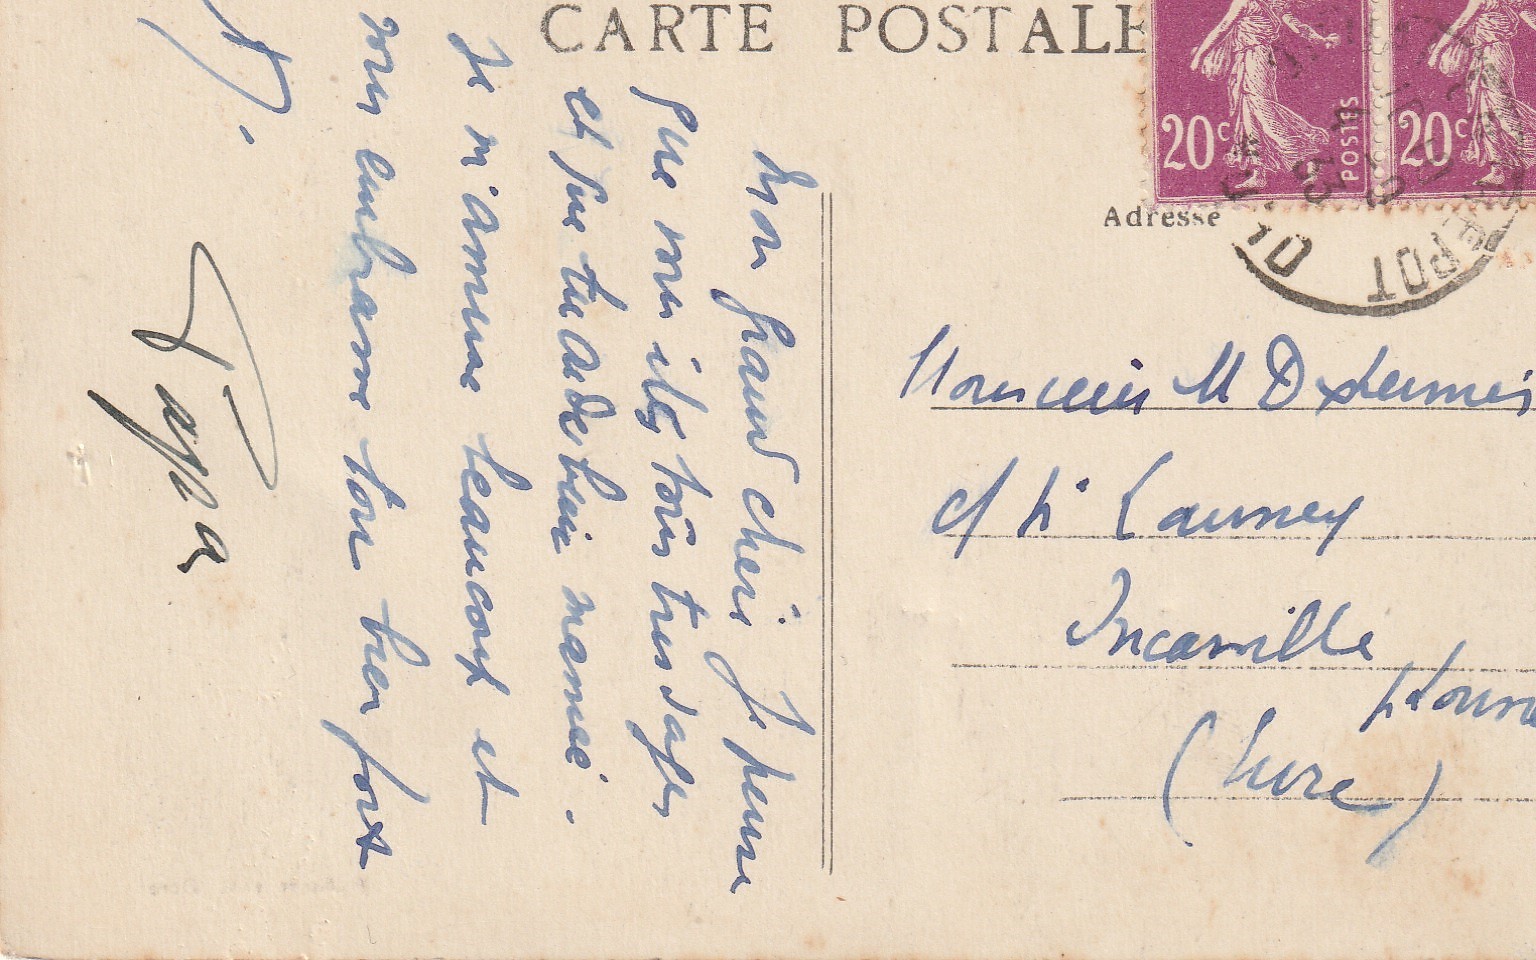 CARTE POSTALE
20c
POSTES
20c
Adresse
DEPOT
Mon grand cheri je pense
que vous êtes tous tres sages
et que tu aides bien mamie.
Je m'amuse beaucoup et
vous embrasse tous bien fort
Papa
Monsieur M
c/ Launey
Incarville
(Eure)